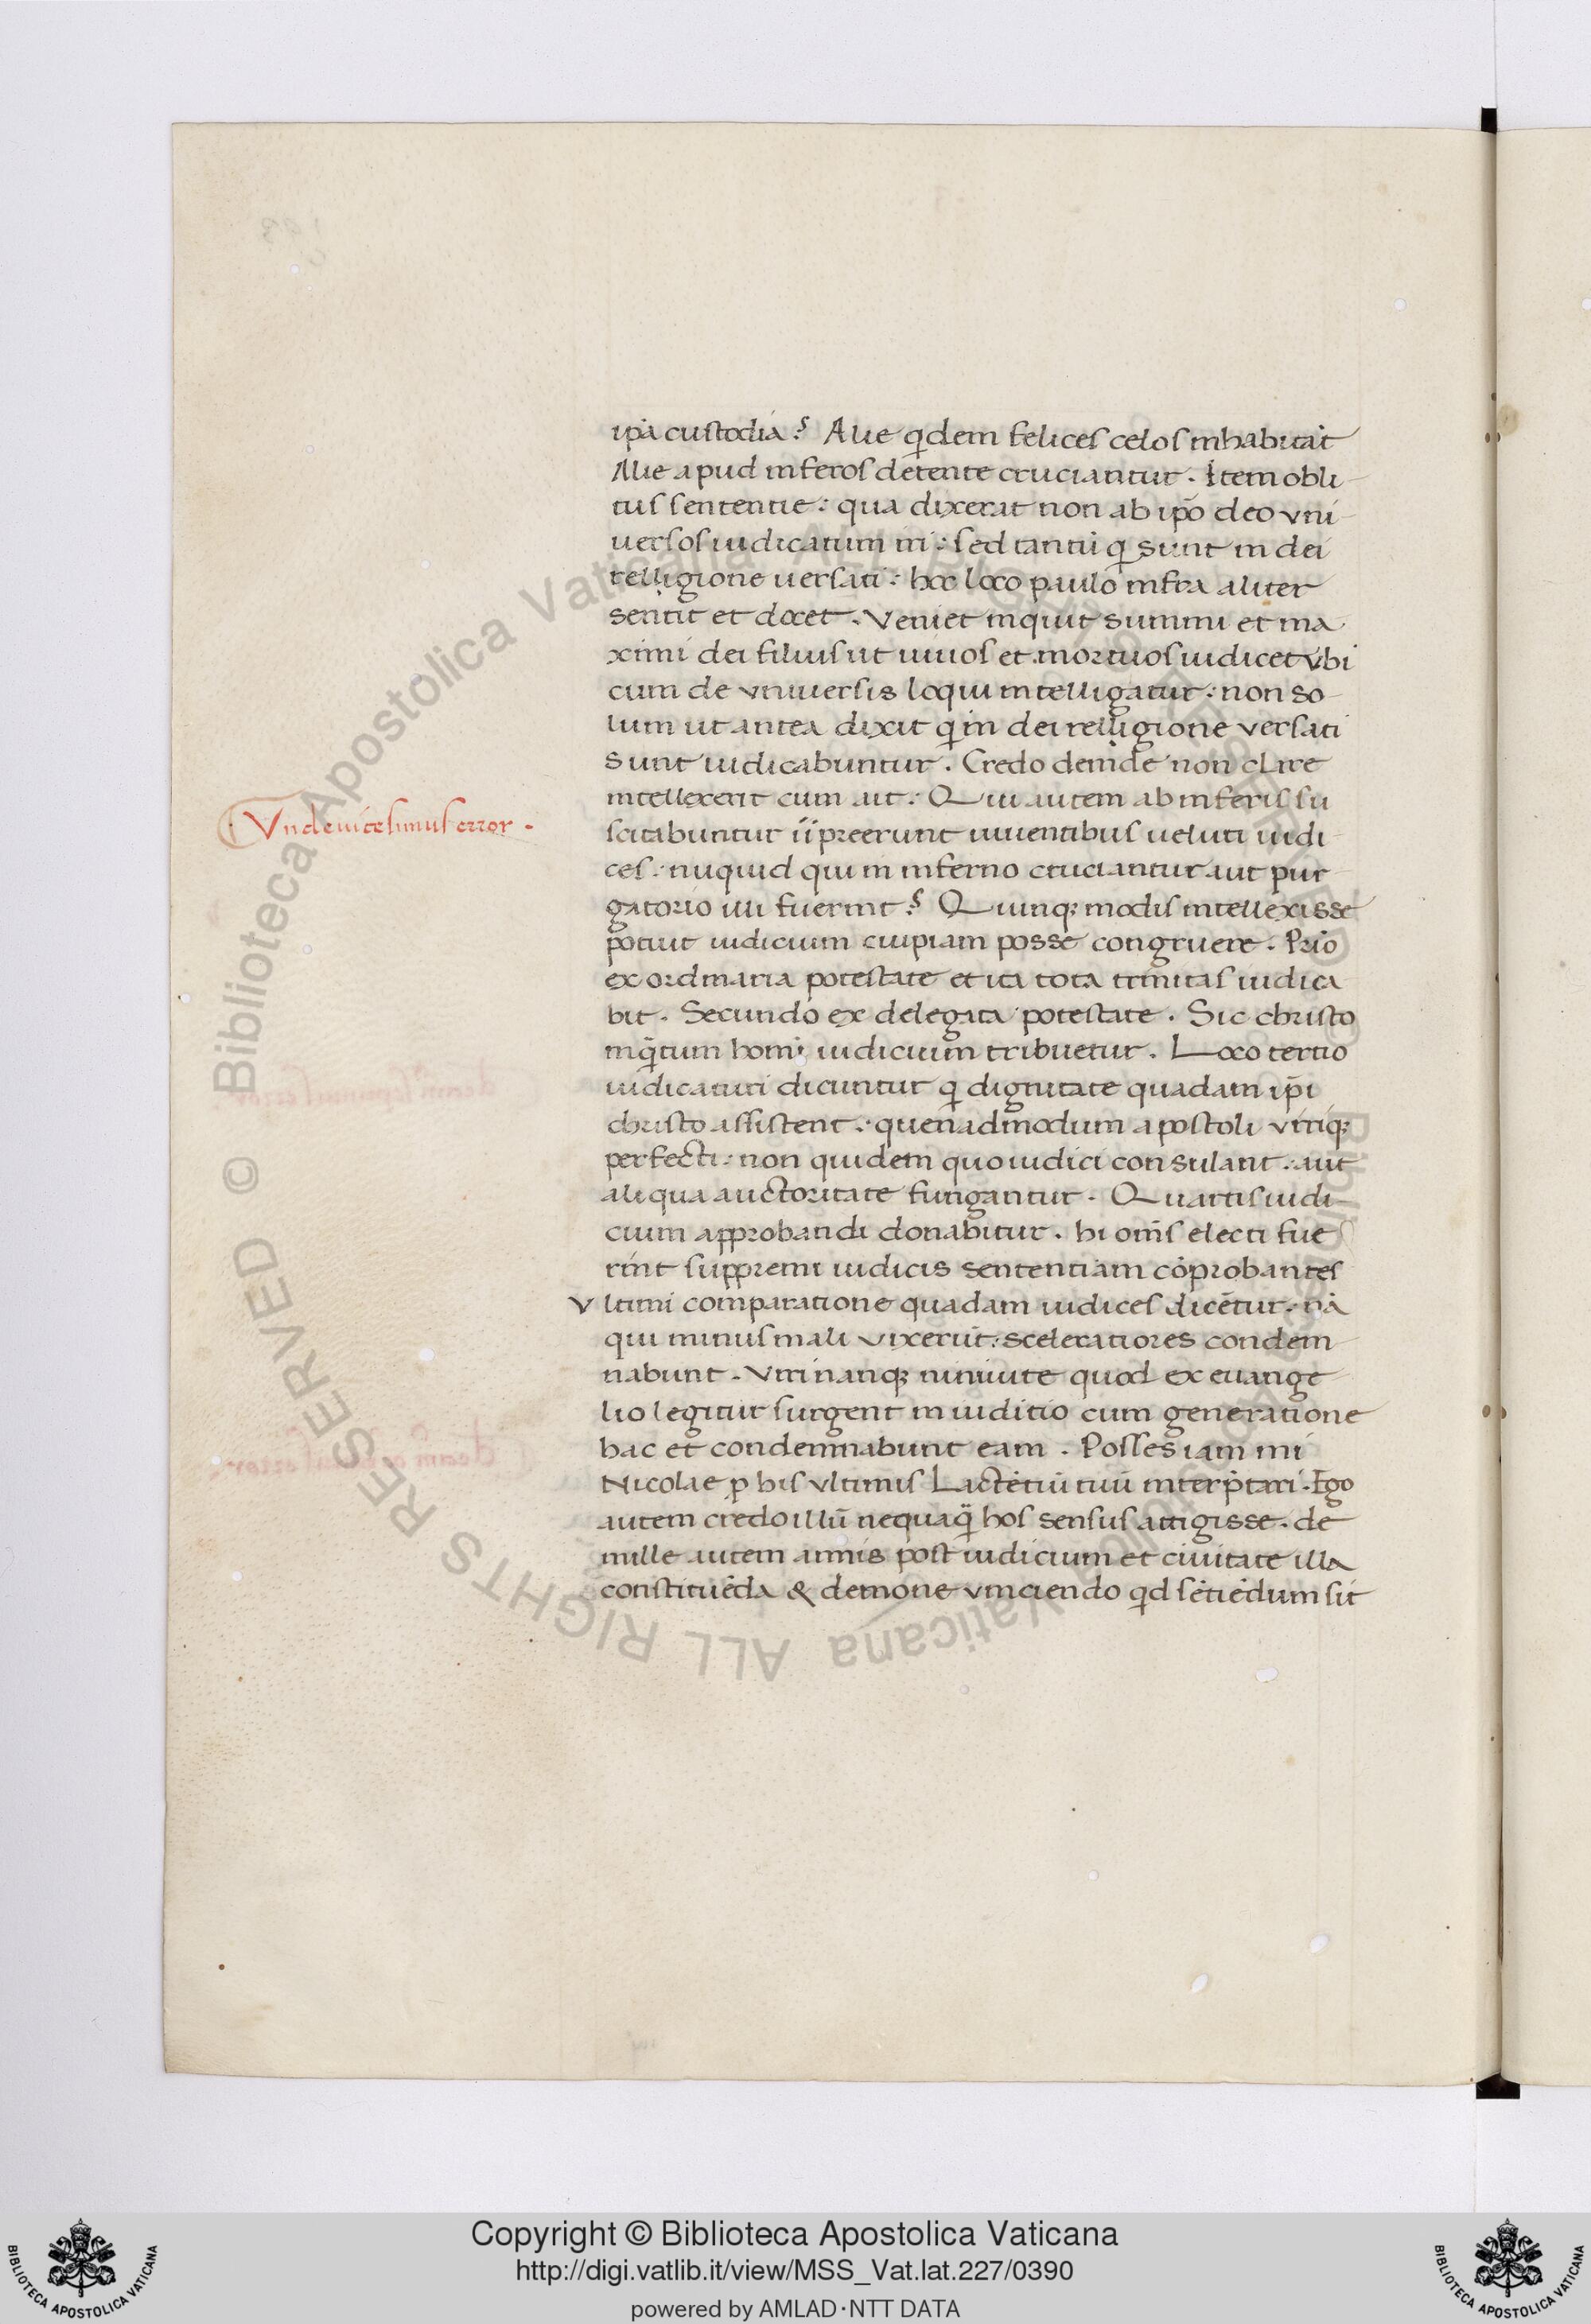 ipā custodiā? Alie qͥdem felices celos inhabitāt
Alie apud inferos detente cruciantur. Item obli-
tus sententie: qua dixerat non ab ip̄o deo vni-
uersos iudicatum iri: sed tantū qͥ sunt in dei
relligione uersati: hoc loco paulo infra aliter
sentit et docet. Veniet inquit summi et ma
ximi dei filius ut uiuos et mortuos iudicet Vbi
cum de vniuersis loqui intelligatur: non so-
lum ut antea dixit qͥ in dei relligione versati
sunt iudicabuntur. Credo deinde non clare
intellexerit cum ait: Qui autem ab inferis su
Vndeuicesimus error.
scitabuntur ii preerunt uiuentibus ueluti iudi-
ces: nuquid qui in inferno cruciantur aut pur-
gatorio illi fuerint? Quinqȝ modis intellexisse
potuit iudicium cuipiam posse congruere. Prīo
ex ordinaria potestate et ita tota trinitas iudica
bit. Secundo ex delegata potestate. Sic christo
inqͣtum homī iudicium tribuetur. Loco tertio
iudicaturi dicuntur qͥ dignitate quadam ip̄i
christo assistent: quenadmodum apostoli viriqȝ
perfecti: non quidem quo iudici consulant: aut
aliqua auctoritate fungantur. Quartis iudi-
cium approbandi donabitur. hi om̄s electi fue
rint suppremi iudicis sententiam cōprobantes
Vltimi comparatione quadam iudices dicētur: nā
qui minus mali vixerūt: sceleratiores condem-
nabunt. Viri nanqȝ niniuite quod ex euange-
lio legitur surgent in iuditio cum generatione
hac et condemnabunt eam. Posses iam mi
Nicolae ꝓ his vltimis Lactētiū tuū interp̄tari. Ego
autem credo illū nequaqͣ hos sensus attigisse. de
mille autem annis post iudicium et ciuitate illa
constituēda & demone vinciendo qͥd sētiēdum sit
Copyright © Biblioteca Apostolica Vaticana
http://digi.vatlib.it/view/MSS_Vat.lat.227/0390
powered by AMLAD·NTT DATA
BIBLIOTECA APOSTOLICA VATICANA
BIBLIOTECA APOSTOLICA VATICANA
© Biblioteca Apostolica Vaticana ALL RIGHTS RESERVED